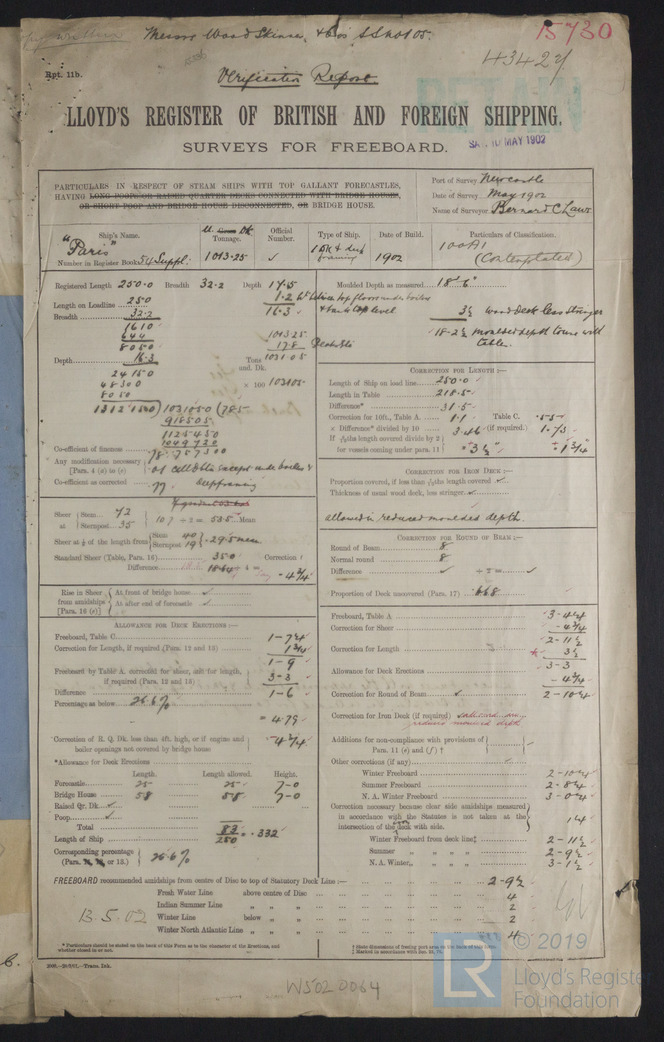 Messrs Wood Skinner, & Co's S.S. No 105.
15730
43424
Rpt. 11b.
Verification Report.
RETAIN
LLOYD'S REGISTER OF BRITISH AND FOREIGN SHIPPING.
SAT. 10 MAY 1902
SURVEYS FOR FREEBOARD.
PARTICULARS IN RESPECT OF STEAM SHIPS WITH TOP GALLANT FORECASTLES,
HAVING LONG POOPS OR RAISED QUARTER DECKS CONNECTED WITH BRIDGE HOUSES,
OR SHORT POOP AND BRIDGE HOUSE DISCONNECTED, OR BRIDGE HOUSE.
Port of Survey Newcastle
Date of Survey May 1902
Name of Surveyor Bernard C Laws
Ship's Name.
"Paris"
Number in Register Book 54 Suppl:
U. Dk
Tonnage.
1013.25
Official
Number.
Type of Ship.
1 Dk & deep
framing
Date of Build.
1902
Particulars of Classification.
100A1
(Contemplated)
Registered Length 250.0 Breadth 32.2 Depth 17.5
1.2
16.3
Length on Loadline 250
Breadth 32.2
1610
644
8050
Depth 16.3
24150
48300
8050
1312150) 1031050 (785
918505
1125450
1049720
757300
1013.25
17.8
Tons 1031.05
und. Dk.
× 100 103105
Co-efficient of fineness .78
Any modification necessary
[Para. 4 (a) to (e)
of cell Dble except under boilers &
Co-efficient as corrected .77 deep framing
Moulded Depth as measured 18'-6"
3½ wood deck less stringer
18-2½ moulded depth to use with
tables.
CORRECTION FOR LENGTH :—
Length of Ship on load line 250.0
Length in Table 218.5
Difference* 31.5
Correction for 10ft., Table A. 1.1 Table C. .55
× Difference* divided by 10 3.46 (if required.) 1.73
If 6/10ths length covered divide by 2
for vessels coming under para. 11
"3½" "1¾"
CORRECTION FOR IRON DECK :—
Proportion covered, if less than 7/10ths length covered
Thickness of usual wood deck, less stringer
allowed in reduced moulded depth.
Sheer at
Stem 72
Sternpost 35
107 ÷ 2 = 53.5 Mean
Sheer at ⅛ of the length from
Stem 40
Sternpost 19
29.5 mean
Standard Sheer (Table, Para. 16) 35.0 Correction
Difference 18.5 - 4¾
Rise in Sheer
from amidships
[Para. 16 (e)]
At front of bridge house
At after end of forecastle
CORRECTION FOR ROUND OF BEAM :—
Round of Beam 8
Normal round 8
Difference ÷ 2 =
Proportion of Deck uncovered (Para. 17) .668
ALLOWANCE FOR DECK ERECTIONS :—
Freeboard, Table C. 1-7¼
Correction for Length, if required (Para. 12 and 13) 1¾
1-9
Freeboard by Table A. corrected for sheer, and for length,
if required (Para. 12 and 13) 3-3
Difference 1-6
Percentage as below 26.6%
= 4.79
Correction of R. Q. Dk. less than 4ft. high, or if engine and
boiler openings not covered by bridge house
- 4¾
*Allowance for Deck Erections :—
Length. Length allowed. Height.
Forecastle 25 25 7-0
Bridge House 58 58 7-0
Raised Qr. Dk.
Poop
Total 83
Length of Ship 250 = .332
Corresponding percentage
(Para. or 13.)
26.6%
Freeboard, Table A 3-4¼
Correction for Sheer - 4¾
2-11½
Correction for Length 3½
3-3
Allowance for Deck Erections - 4¾
2-10¼
Correction for Round of Beam
Correction for Iron Deck (if required) allowed in
reduced moulded depth
Additions for non-compliance with provisions of
Para. 11 (e) and (f) †
Other corrections (if any)
Winter Freeboard 2-10¼
Summer Freeboard 2-8¼
N. A. Winter Freeboard 3-0¼
Correction necessary because clear side amidships measured
in accordance with the Statutes is not taken at the
intersection of the deck with side.
1¼
Winter Freeboard from deck line‡ 2-11½
Summer „ „ „ „ 2-9½
N. A. Winter „ „ „ „ 3-1½
FREEBOARD recommended amidships from centre of Disc to top of Statutory Deck Line :— 2-9½
Fresh Water Line above centre of Disc 4
Indian Summer Line „ „ 2
Winter Line below „ „ 2
Winter North Atlantic Line „ „ 4
13.5.02
* Particulars should be stated on the back of this Form as to the character of the Erections, and
whether closed in or not.
† State dimensions of freeing port area on the back of this Form.
‡ Marked in accordance with
W502 0064
© 2019
LR
Lloyd's Register
Foundation